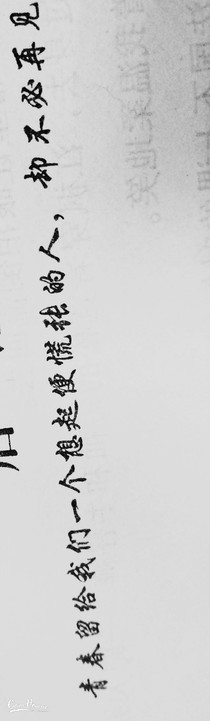 青春留给我们一个想起便慌张的人，却不必再见